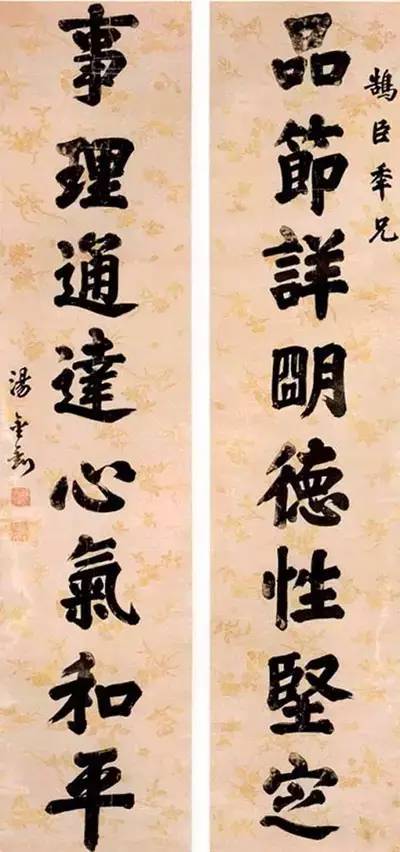 鵠臣年兄
品節詳明德性堅定
事理通達心氣和平
湯金釗